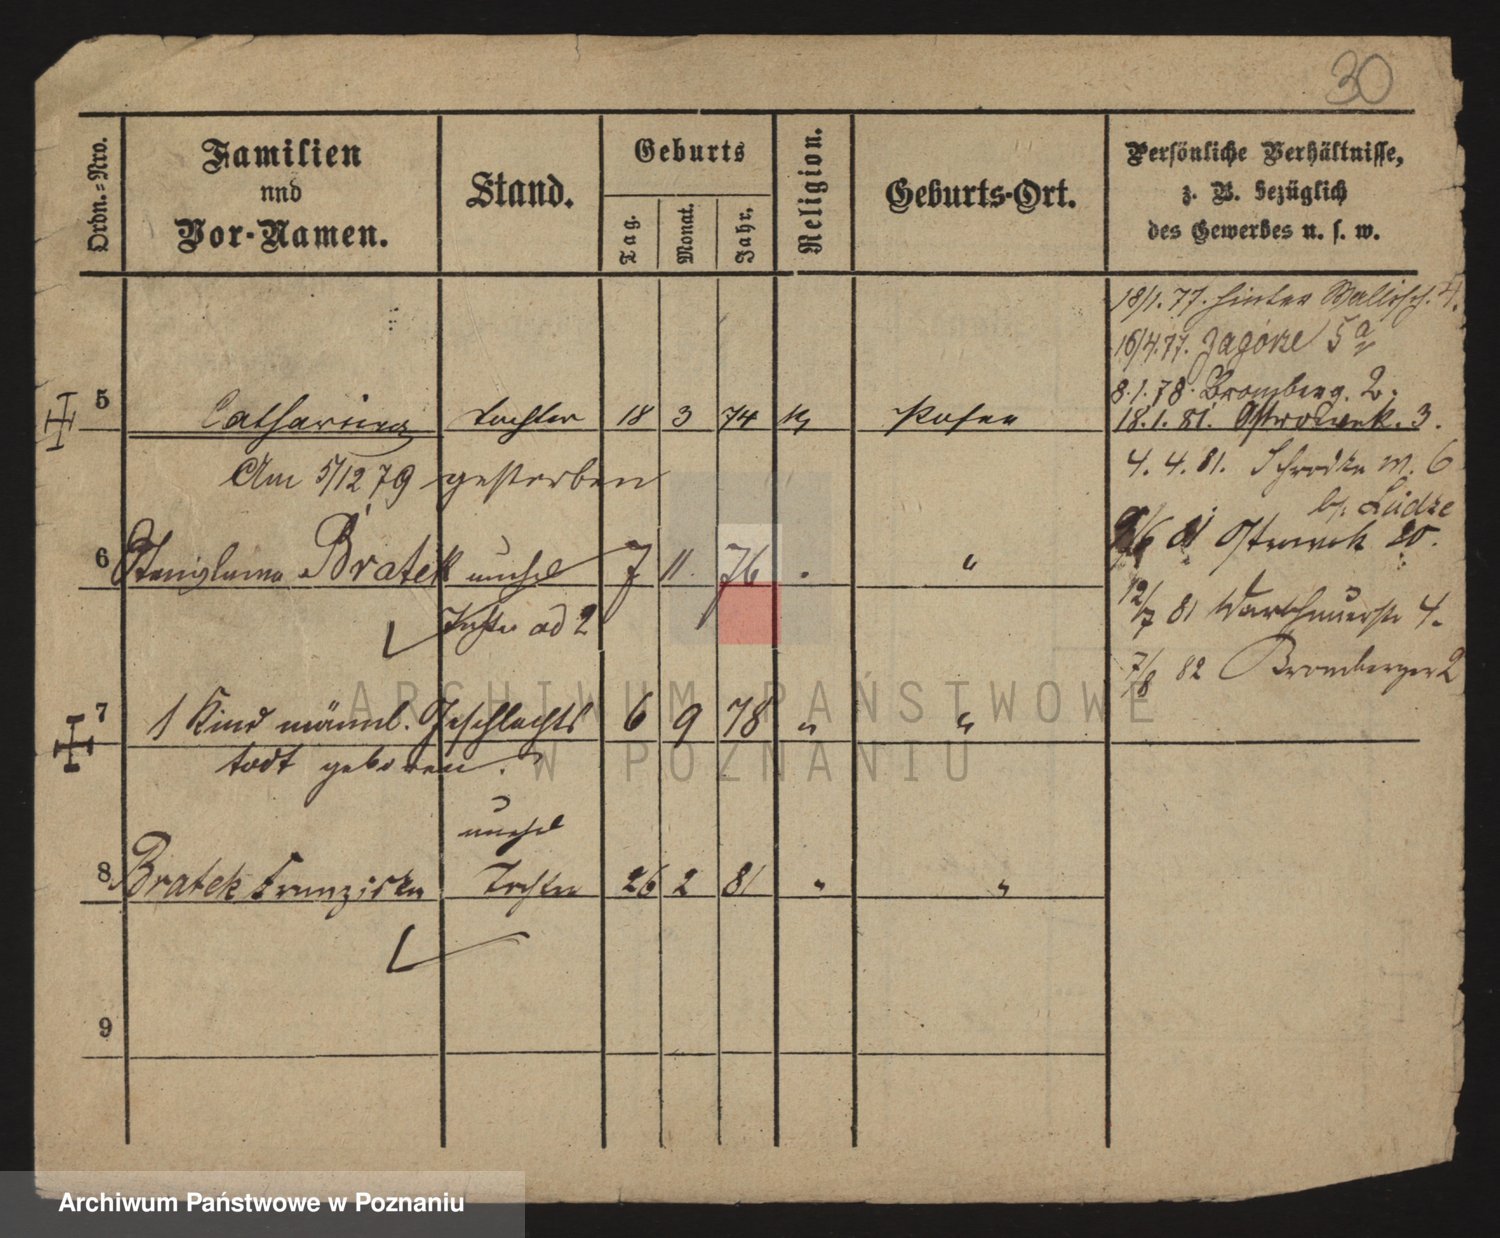 30
Ordn.=Nro.
Familien
und
Vor-Namen.
Stand.
Geburts
Tag.
Monat.
Jahr.
Religion.
Geburts-Ort.
Persönliche Verhältnisse,
z. B. bezüglich
des Gewerbes u. s. w.
18/1. 77. hinter Wallisch. 4.
16/4. 77. Zagórze 5 a
8. 1. 78. Bromberg. 2.
5 Catharina Tochter 18 3 74 Posen
18. 1. 81. Ostrowek. 3.
Am 5/12 79 gestorben
4. 4. 81. Schrodka M. 6
b/. Lüdke
6 Stanislawa Bratek unehel 7 11. 76 "
81 Ostrowek 20.
Tochter ad 2
12/7 81 Warschauerstr 4.
7/8 82 Bromberger 2
7 1 Kind männl. Geschlechts 6 9 78 " "
todt geboren.
unehel
8 Bratek Franziska Tochter 26 2 81 " "
9
ARCHIWUM PAŃSTWOWE
W POZNANIU
Archiwum Państwowe w Poznaniu